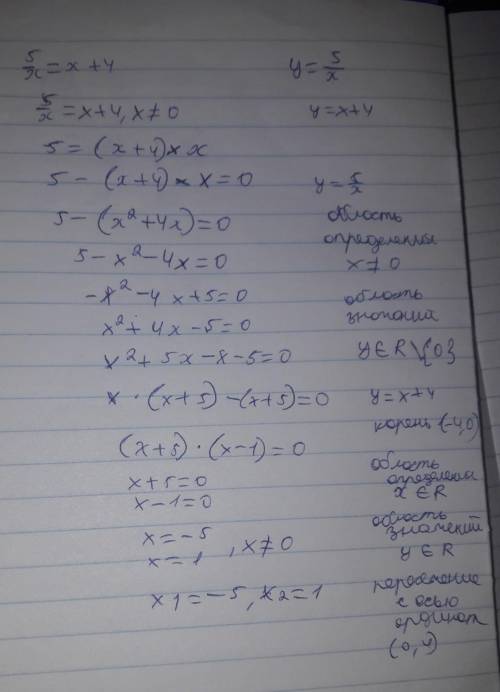 5/x = x + 4
5/x = x + 4, x ≠ 0
5 = (x + 4) × x
5 - (x + 4) × x = 0
5 - (x² + 4x) = 0
5 - x² - 4x = 0
-x² - 4x + 5 = 0
x² + 4x - 5 = 0
x² + 5x - x - 5 = 0
x · (x + 5) - (x + 5) = 0
(x + 5) · (x - 1) = 0
x + 5 = 0
x - 1 = 0
x = -5
x = 1 , x ≠ 0
x1 = -5, x2 = 1
y = 5/x
y = x + 4
y = 5/x
область
определения
x ≠ 0
область
значения
y ∈ R \ {0}
y = x + 4
корень (-4,0)
область
определения
x ∈ R
область
значений
y ∈ R
пересечение
с осью
ординат
(0, 4)